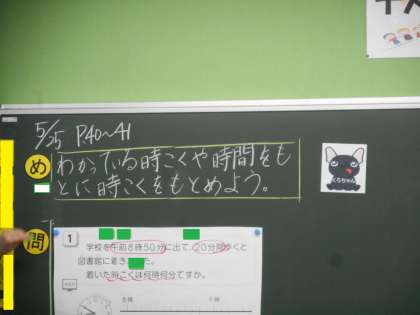 5/25 P40~41
め わかっている時こくや時間をも
とに時こくをもとめよう。
くろちゃん
問
1
学校を午前8時50分に出て、20分間歩くと
図書館に着きました。
着いた時こくは何時何分ですか。
8時
9時